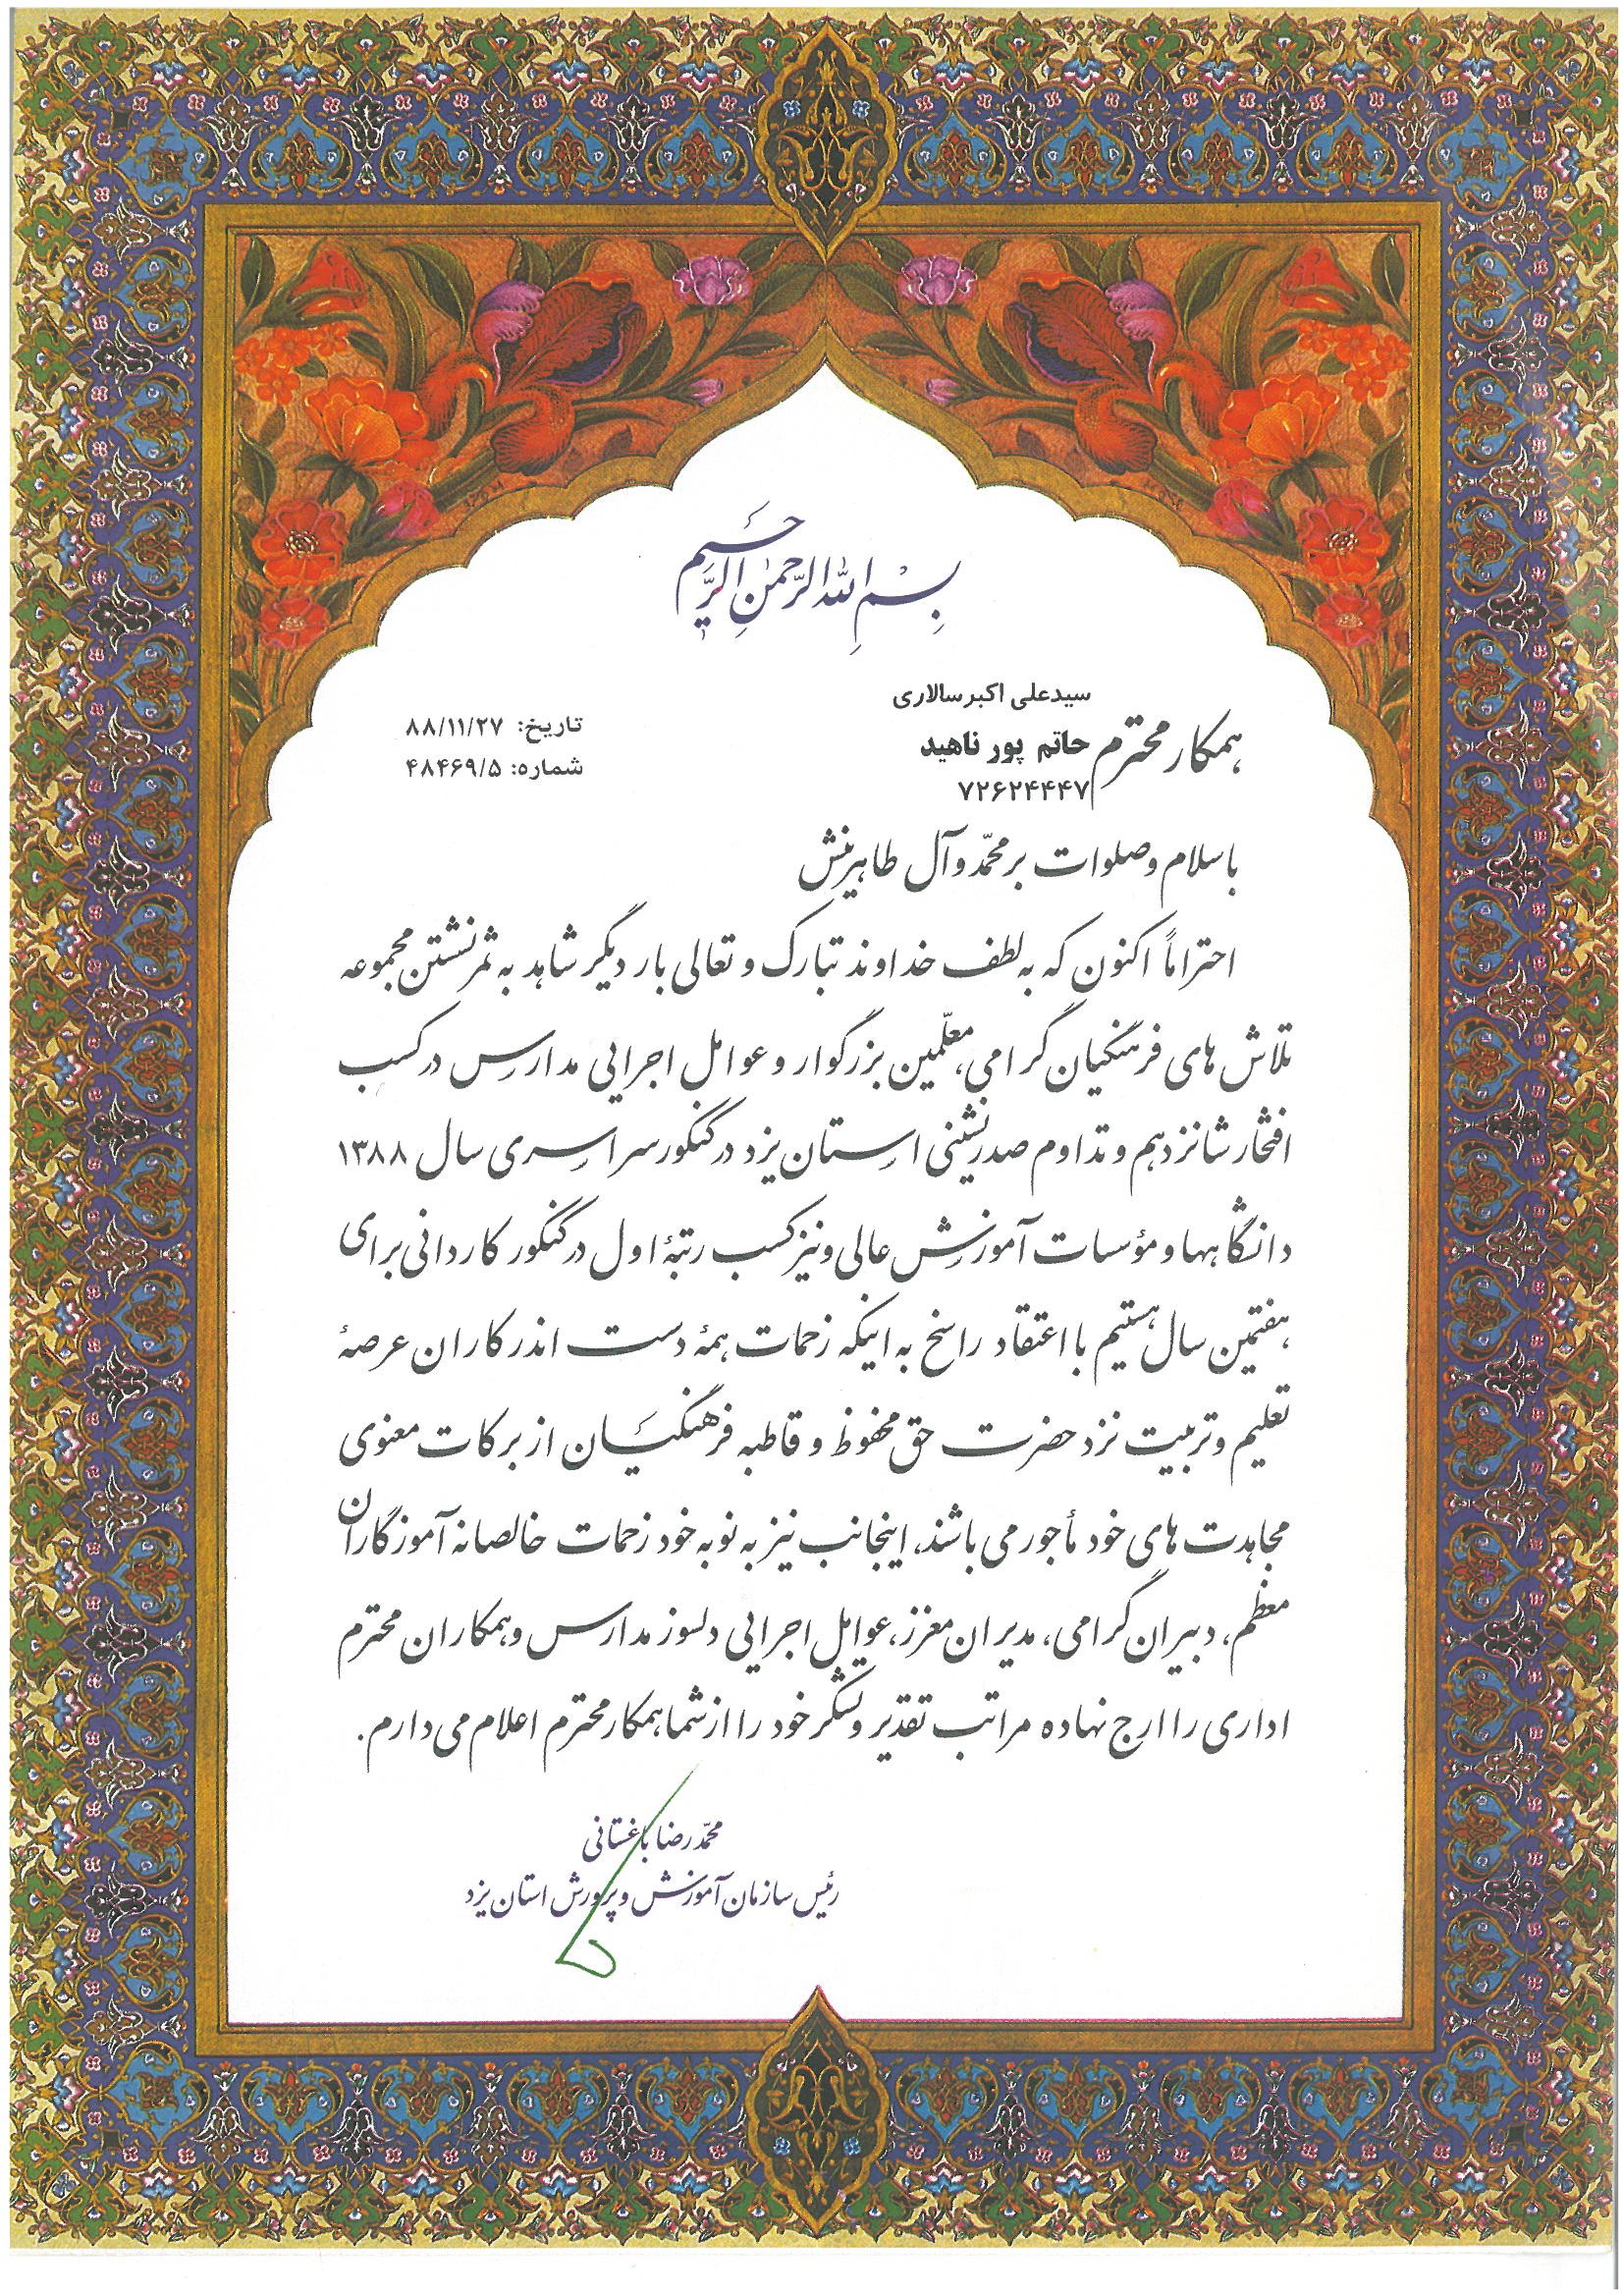 بِسْمِ اللهِ الرَّحمٰنِ الرَّحیم
سیدعلی اکبر سالاری
همکار محترم حاتم پور ناهید
۷۲۶۲۴۴۴۷
تاریخ: ۸۸/۱۱/۲۷
شماره: ۴۸۴۶۹/۵
با سلام و صلوات بر محمّد و آل طاهرینش
احتراماً اکنون که به لطف خداوند تبارک و تعالی بار دیگر شاهد به ثمر نشستن مجموعه
تلاش های فرهنگیان گرامی، معلّمین بزرگوار و عوامل اجرایی مدارس در کسب
افتخار شانزدهم و تداوم صدرنشینی استان یزد در کنکور سراسری سال ۱۳۸۸
دانشگاهها و مؤسسات آموزش عالی و نیز کسب رتبهٔ اول در کنکور کاردانی برای
هفتمین سال هستیم با اعتقاد راسخ به اینکه زحمات همهٔ دست اندرکاران عرصهٔ
تعلیم و تربیت نزد حضرت حق محفوظ و قاطبه فرهنگیان از برکات معنوی
مجاهدت های خود مأجور می باشند، اینجانب نیز به نوبه خود زحمات خالصانه آموزگاران
معظم، دبیران گرامی، مدیران معزز، عوامل اجرایی دلسوز مدارس و همکاران محترم
اداری را ارج نهاده مراتب تقدیر و تشکر خود را از شما همکار محترم اعلام می دارم.
محمّدرضا باغستانی
رئیس سازمان آموزش و پرورش استان یزد